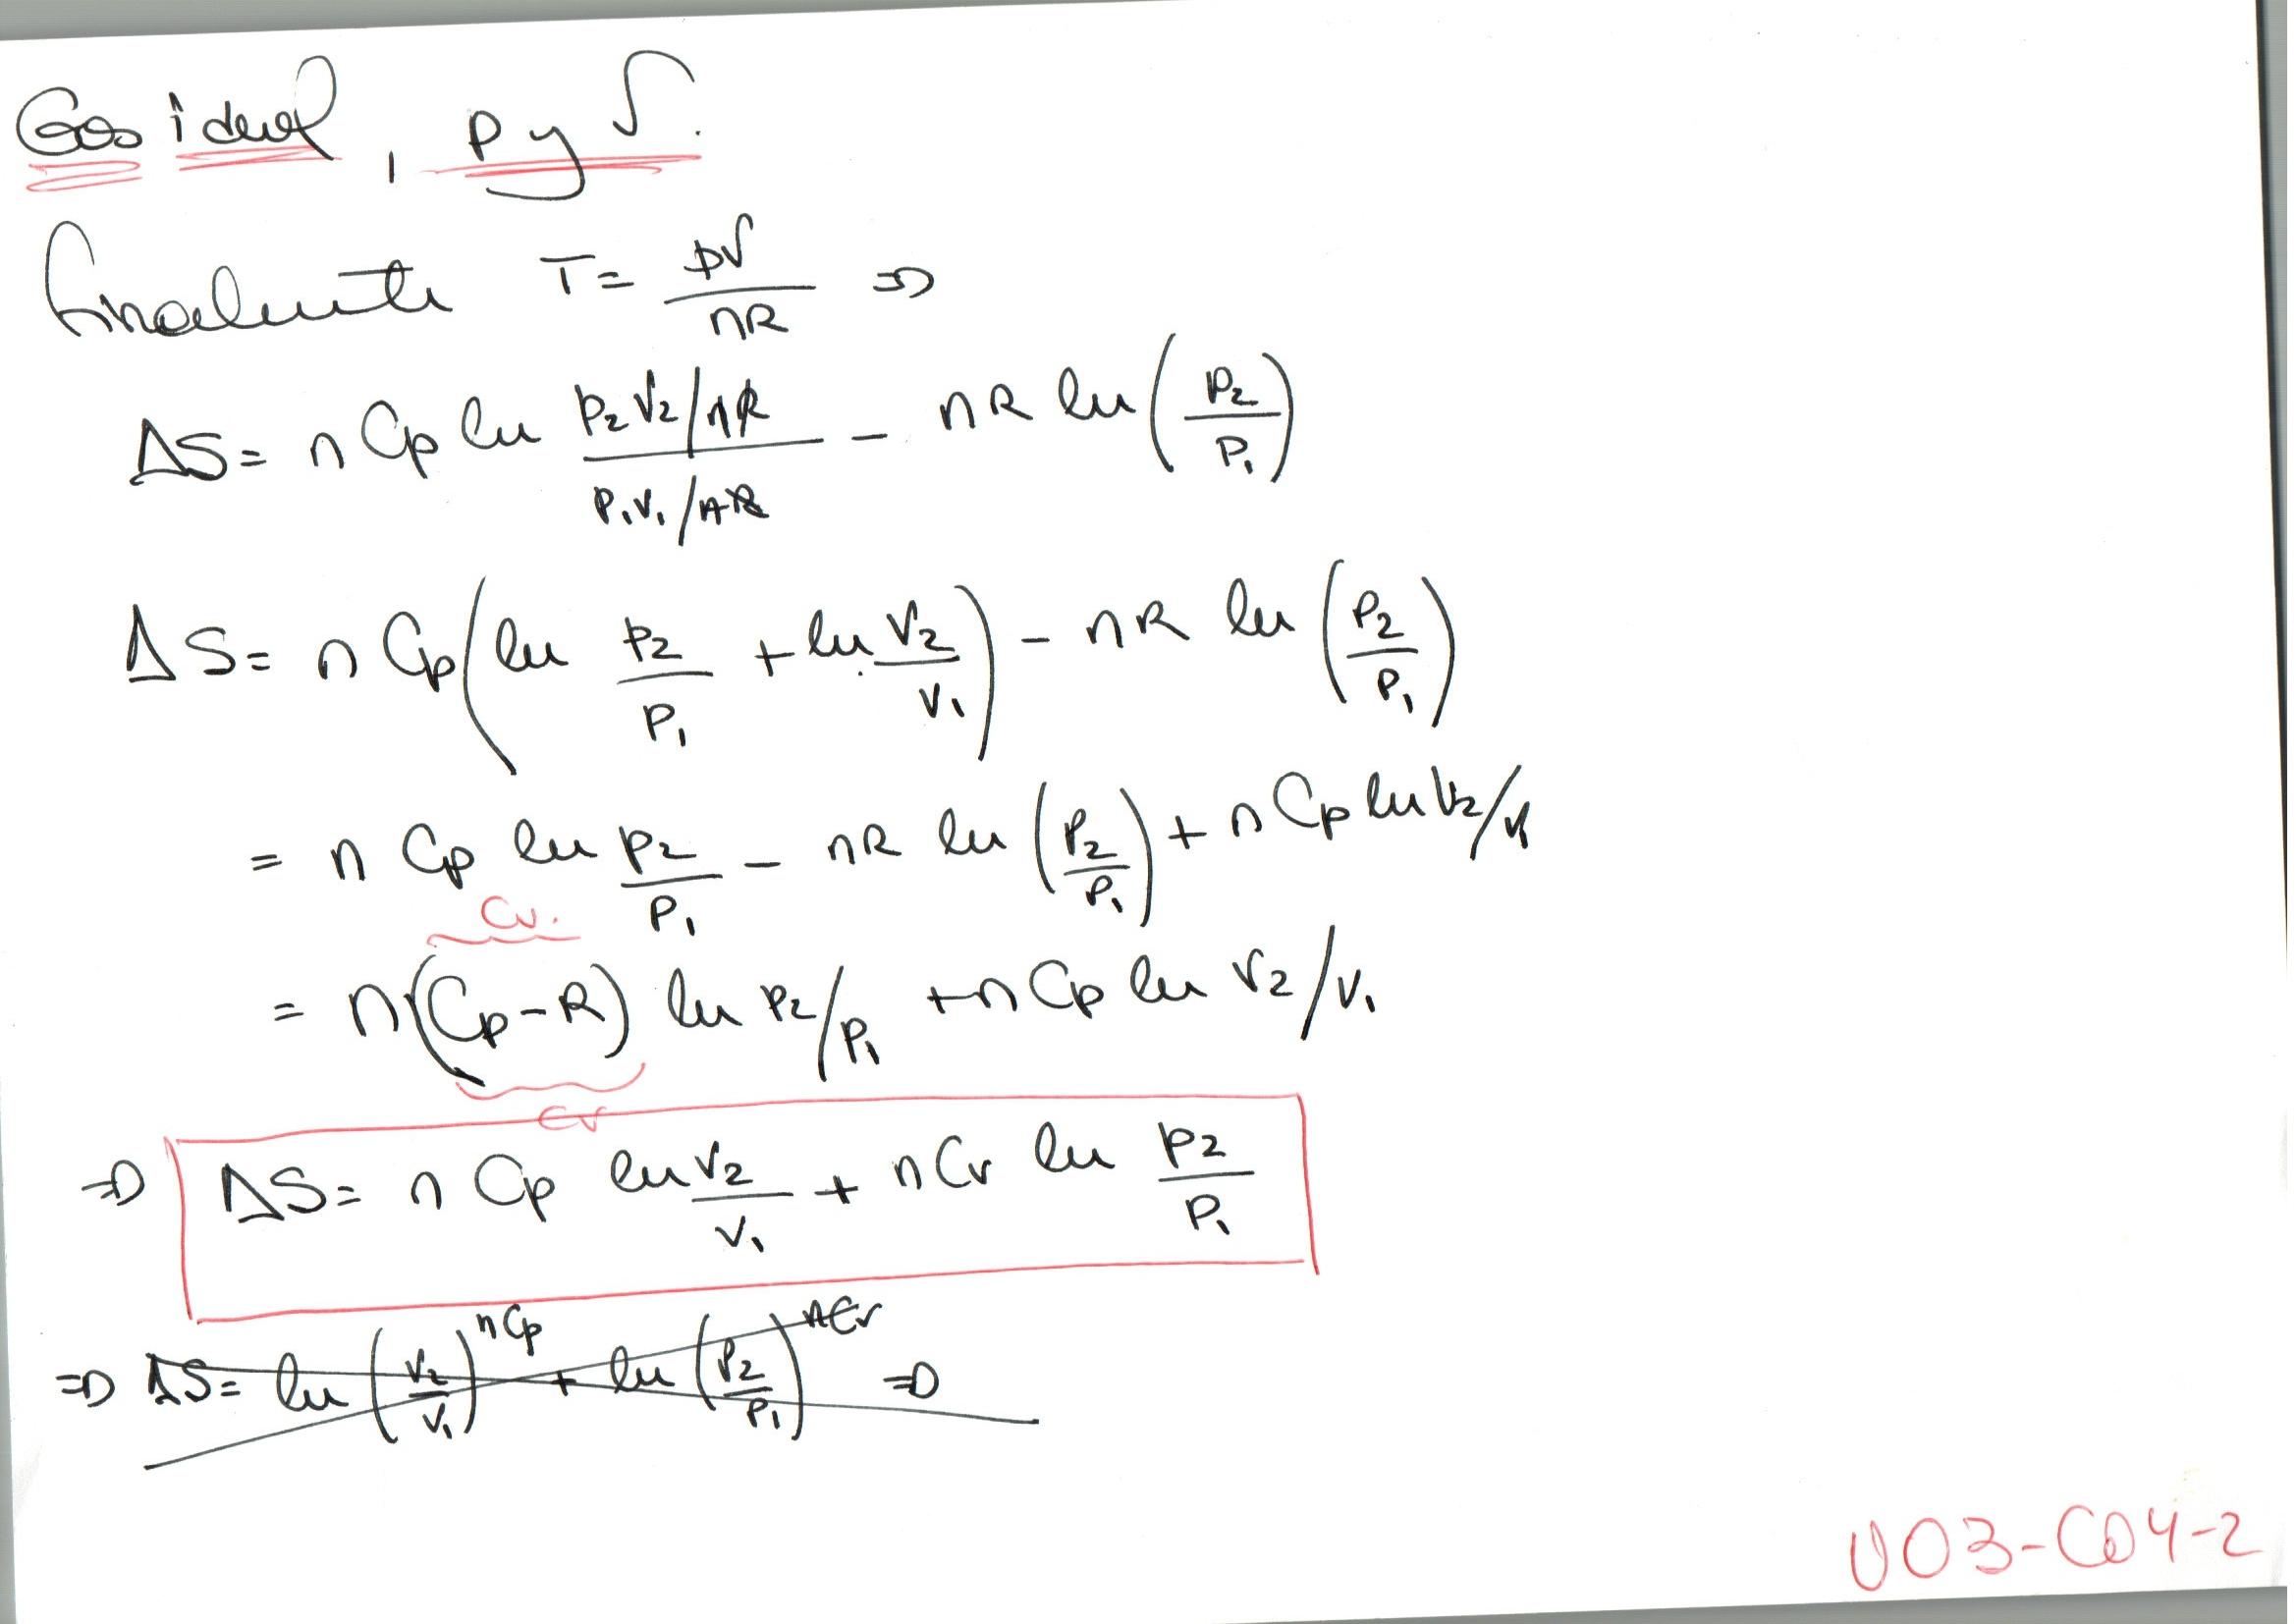 Gas ideal, p y V.
finalmente T = pV/nR ⇒
ΔS = n Cp ln (p2 V2/nR)/(P1 V1/nR) - nR ln (P2/P1)
ΔS = n Cp (ln p2/P1 + ln V2/V1) - nR ln (P2/P1)
= n Cp ln p2/P1 - nR ln (P2/P1) + n Cp ln V2/V1
Cv.
= n(Cp-R) ln P2/P1 + n Cp ln V2/V1
Cv
⇒ ΔS = n Cp ln V2/V1 + n Cv ln p2/P1
⇒ ΔS = ln (V2/V1)^nCp + ln (P2/P1)^nCv ⇒
U03-C04-2